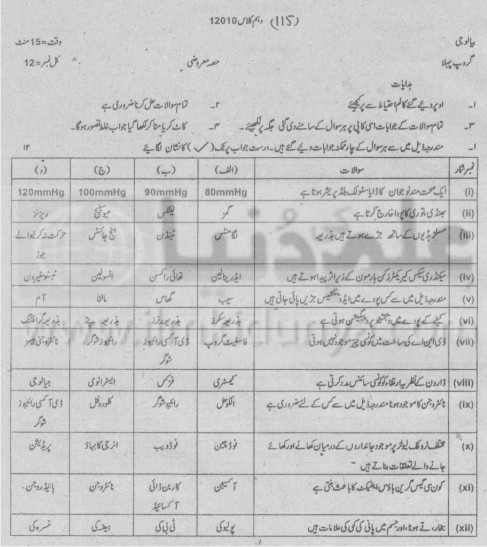 (115) دہم کلاس 12010
بیالوجی وقت=15 منٹ
گروپ پہلا حصہ معروضی کل نمبر=12
ہدایات
۱۔ اوپر دیے گئے کالم احتیاط سے پر کیجئے ۲۔ تمام سوالات حل کرنا ضروری ہے
۳۔ تمام سوالات کے جوابات اسی کاپی پر ہر سوال کے سامنے دی گئی جگہ پر لکھیئے۔ ۴۔ کاٹ کر یا مٹا کر لکھا گیا جواب غلط تصور ہوگا۔
۱۔ مندرجہ ذیل میں سے ہر سوال کے چار ممکنہ جوابات دیے گئے ہیں۔ درست جواب پر ٹک (✓) کا نشان لگائیے ۱۲
نمبر شمار سوالات (الف) (ب) (ج) (د)
(i) ایک صحت مند نوجوان کا ڈایاسٹولک بلڈ پریشر ہوتا ہے 80mmHg 90mmHg 100mmHg 120mmHg
(ii) بھنڈی توری کا پودا خارج کرتا ہے گمز لیٹکس میوسلیج ریزنز
(iii) مسلز ہڈیوں کے ساتھ جڑے ہوتے ہیں بذریعہ لگامنٹس ٹینڈن ہنج جائنٹس حرکت نہ کرنے والے
جوڑ
(iv) سیکنڈری سیکس کریکٹرز کن ہارمون کے زیر اثر پیدا ہوتے ہیں ایڈرینالین تھائی راکسن انسولین ٹیسٹوسٹیرون
(v) مندرجہ ذیل میں سے کس پودے میں ایڈونٹیشیس جڑیں پائی جاتی ہیں سیب گھاس مالٹا آم
(vi) کیلے کے پودے میں ویجیٹیٹو پروپیگیشن ہوتی ہے بذریعہ سکرز بذریعہ بذریعہ پتے بذریعہ گرافٹنگ
(vii) ڈی این اے کی ساخت میں کونسی چیز موجود نہیں ہوتی فاسفیٹ گروپ ڈی آکسی رائیبوز رائیبوز شوگر نائٹروجنی بیسز
شوگر
(viii) ڈارون کے نظریہ ارتقاء کو کونسی سائنس مدد کرتی ہے کیمسٹری فزکس ایسٹرانومی جیالوجی
(ix) نائٹروجن کا موجود ہونا مندرجہ ذیل میں سے کس کے لئے ضروری ہے الکحل رائیبو شوگر کلوروفل ڈی آکسی رائیبوز
شوگر
(x) مختلف ٹروفک لیولز پر موجود جانداروں کے درمیان کھانے اور کھائے فوڈ چین فوڈ ویب انرجی کا بہاؤ پریڈیشن
جانے والے تعلقات بناتے ہیں
(xi) کون سی گیس گرین ہاؤس ایفیکٹ کا باعث بنتی ہے آکسیجن کاربن ڈائی نائٹروجن ہائیڈروجن
آکسائیڈ
(xii) بخار، قے ہونا اور جسم میں پانی کی کمی کی علامات ہیں پولیو کی ٹی بی کی ہیضہ کی خسرہ کی